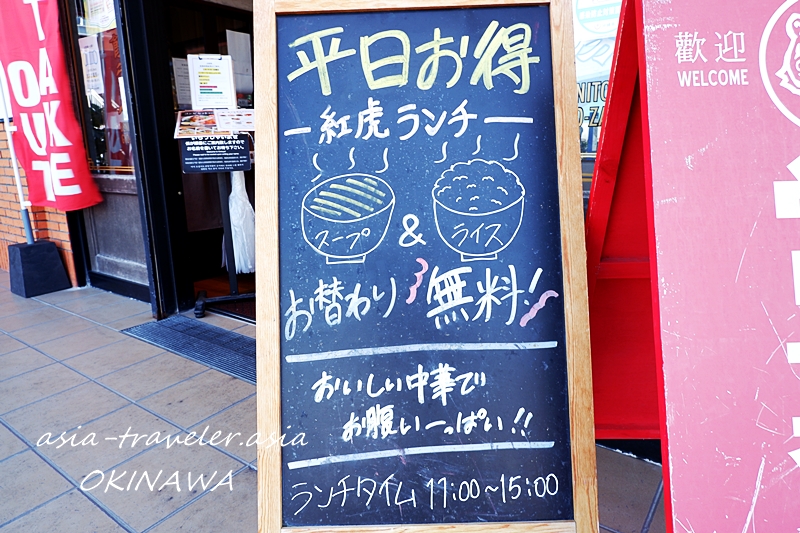 平日お得
紅虎ランチ
スープ
&
ライス
お替わり 無料!
おいしい中華で
お腹いーっぱい!!
ランチタイム 11:00~15:00
TAKE
OUT
歡迎
WELCOME
asia-traveler.asia
OKINAWA